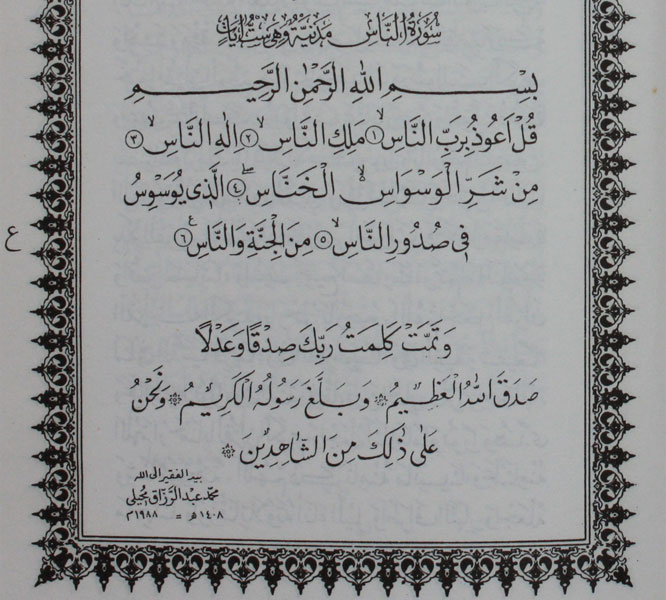 سُورَةُ النَّاسِ مَدَنِيَّةٌ وَهِيَ سِتُّ آيَاتٍ
بِسْمِ اللهِ الرَّحْمٰنِ الرَّحِيمِ
قُلْ اَعُوذُ بِرَبِّ النَّاسِۙ ﴿١﴾ مَلِكِ النَّاسِۙ ﴿٢﴾ اِلٰهِ النَّاسِۙ ﴿٣﴾
مِنْ شَرِّ الْوَسْوَاسِ الْخَنَّاسِۖ ﴿٤﴾ الَّذِي يُوَسْوِسُ
ع
فِي صُدُورِ النَّاسِۙ ﴿٥﴾ مِنَ الْجِنَّةِ وَالنَّاسِ ﴿٦﴾
وَتَمَّتْ كَلِمَتُ رَبِّكَ صِدْقًا وَعَدْلًا
صَدَقَ اللهُ الْعَظِيمُ وَبَلَّغَ رَسُولُهُ الْكَرِيمُ وَنَحْنُ
عَلٰى ذٰلِكَ مِنَ الشَّاهِدِينَ
بيد الفقير الى الله
محمد عبد الرزاق محيلي
١٤٠٨ هـ = ١٩٨٨ م